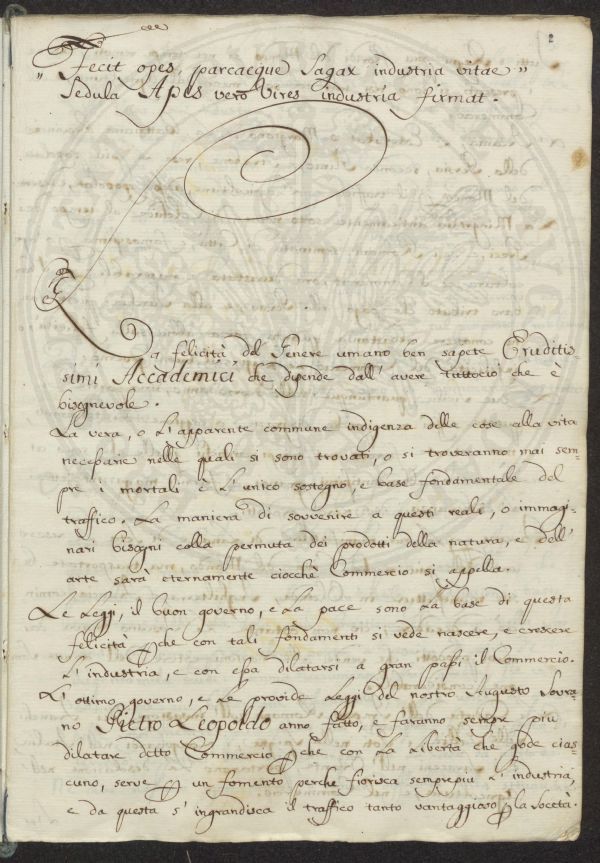 2
„ Fecit opes, parcaeque sagax industria vitae „
Sedula Apes vero Vires industria firmat.
La felicità del Genere umano ben sapete Eruditis-
simi Accademici che dipende dall' avere tuttociò che è
bisognevole.
La vera, o l' apparente commune indigenza delle cose alla vita
necessarie nelle quali si sono trovati, o si troveranno mai sem-
pre i mortali è l' unico sostegno, e base fondamentale del
traffico. La maniera di sovvenire a questi reali, o immagi-
nari bisogni colla permuta dei prodotti della natura, e dell'
arte sarà eternamente ciocchè Commercio si appella.
Le Leggi, il buon governo, e la pace sono la base di questa
felicità perche con tali fondamenti si vede nascere, e crescere
l' industria, e con essa dilatarsi a gran passi il Commercio.
L' ottimo governo, e le provide Leggi del nostro Augusto Sovra-
no Pietro Leopoldo anno fatto, e faranno sempre più
dilatare detto Commercio perche con la libertà che gode cias-
cuno, serve per un fomento perche fiorisca semprepiù l' industria,
e da questa s' ingrandisca il traffico tanto vantaggioso per la Società.